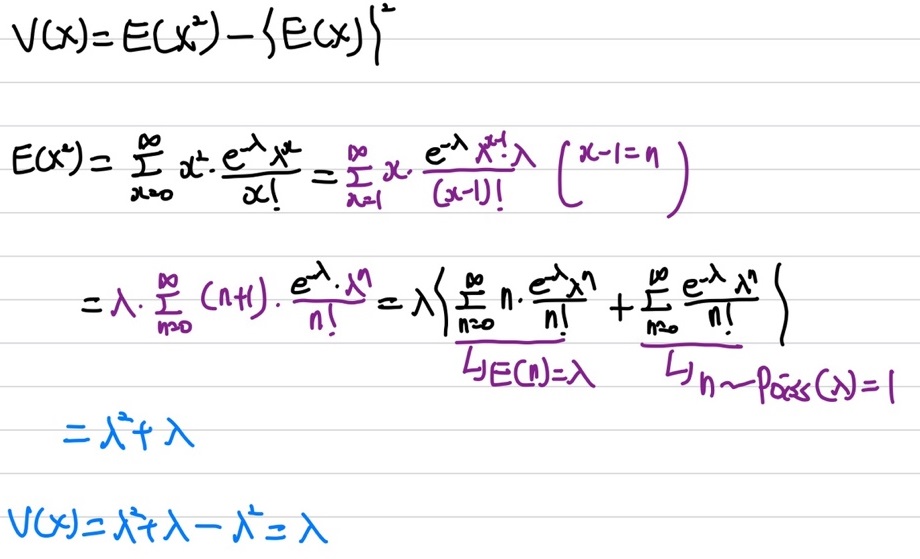 V(X) = E(X²) - {E(X)}²
E(X²) = ∑_{x=0}^{∞} x² · \frac{e^{-λ} λ^x}{x!} = ∑_{x=1}^{∞} x · \frac{e^{-λ} λ^{x-1} · λ}{(x-1)!} ( x-1 = n )
= λ · ∑_{n=0}^{∞} (n+1) · \frac{e^{-λ} · λ^n}{n!} = λ { ∑_{n=0}^{∞} n · \frac{e^{-λ} λ^n}{n!} + ∑_{n=0}^{∞} \frac{e^{-λ} λ^n}{n!} }
↳ E(n) = λ ↳ n ~ Poiss(λ) = 1
= λ² + λ
V(X) = λ² + λ - λ² = λ